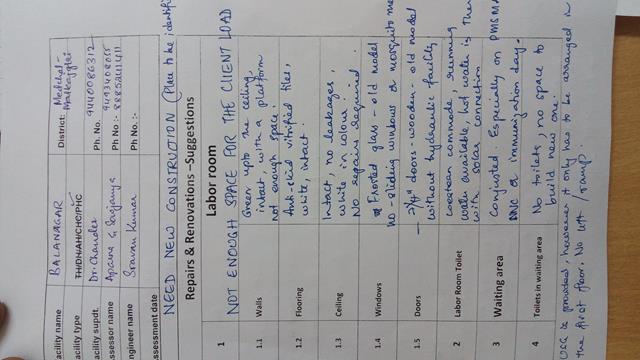 acility name BALANAGAR District: Medchal-Malkajgiri
acility type TH/DH/AH/CHC/PHC
acility supdt. Dr. Chander Ph. No. 9440086312
ssessor name Ph No:- 9493408055
ngineer name Sravan Kumar Ph No:-
ssessment date
NEED NEW CONSTRUCTION (Place to be identifi
Repairs & Renovations –Suggestions
1 Labor room
NOT ENOUGH SPACE FOR THE CLIENT LOAD
1.1 Walls Green upto the ceiling,
intact, with a platform
not enough space.
1.2 Flooring Anti-skid vitrified tiles,
white, intact.
1.3 Ceiling Intact, no leakages,
white in colour.
No repairs required.
1.4 Windows Frosted glass - old model
no-sliding windows or mosquito me
1.5 Doors - doors - wooden - old model
without hydraulic facility
2 Labor Room Toilet western commode, running
water available, hot water is ther
with solar connection
3 Waiting area Congested. Especially on PMSMA
or immunization day.
4 Toilets in waiting area No toilets, no space to
build new one.
USG is provided, however it only has to be arranged in
the first floor. No lift / ramp.